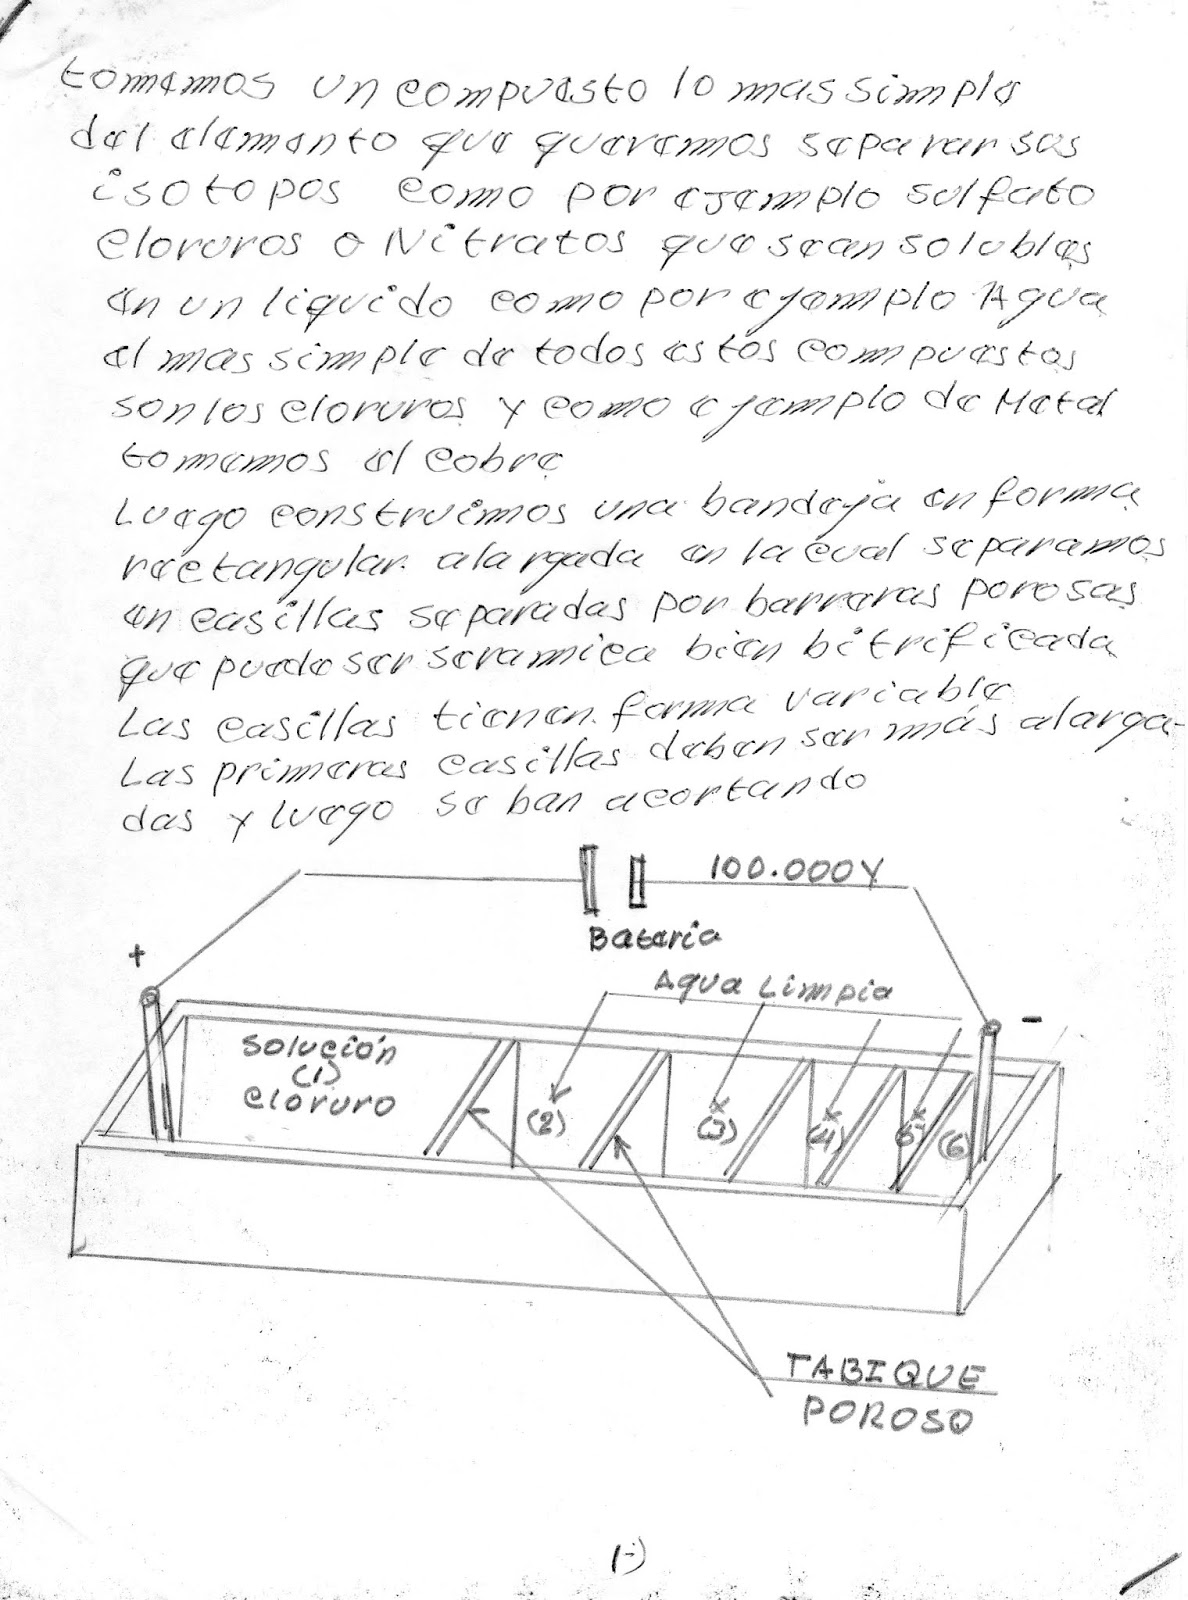 tomemos un compuesto lo mas simple
del elemento que queremos separar sus
isotopos como por ejemplo sulfato
cloruros o Nitratos que sean solubles
en un liquido como por ejemplo Agua
el mas simple de todos estos compuestos
son los cloruros y como ejemplo de Metal
tomemos el cobre
Luego construimos una bandeja en forma
rectangular alargada en la cual separamos
en casillas separadas por barreras porosas
que puede ser seramica bien bitrificada
Las casillas tienen forma variable
Las primeras casillas deben ser más alarga-
das y luego se ban acortando
100.000V
Bateria
+
Agua Limpia
-
Solución
(1)
cloruro
(2)
(3)
(4)
(5)
(6)
TABIQUE
POROSO
1-)